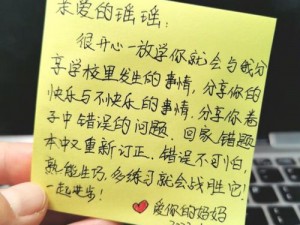 亲爱的瑶瑶:
很开心一放学你就会与我分
享学校里发生的事情,分享你的
快乐与不快乐的事情.分享你卷
子中错误的问题.回家,错题
本中又重新订正.错误不可怕,
熟能生巧,多练习就会战胜它!
一起进步!
爱你的妈妈